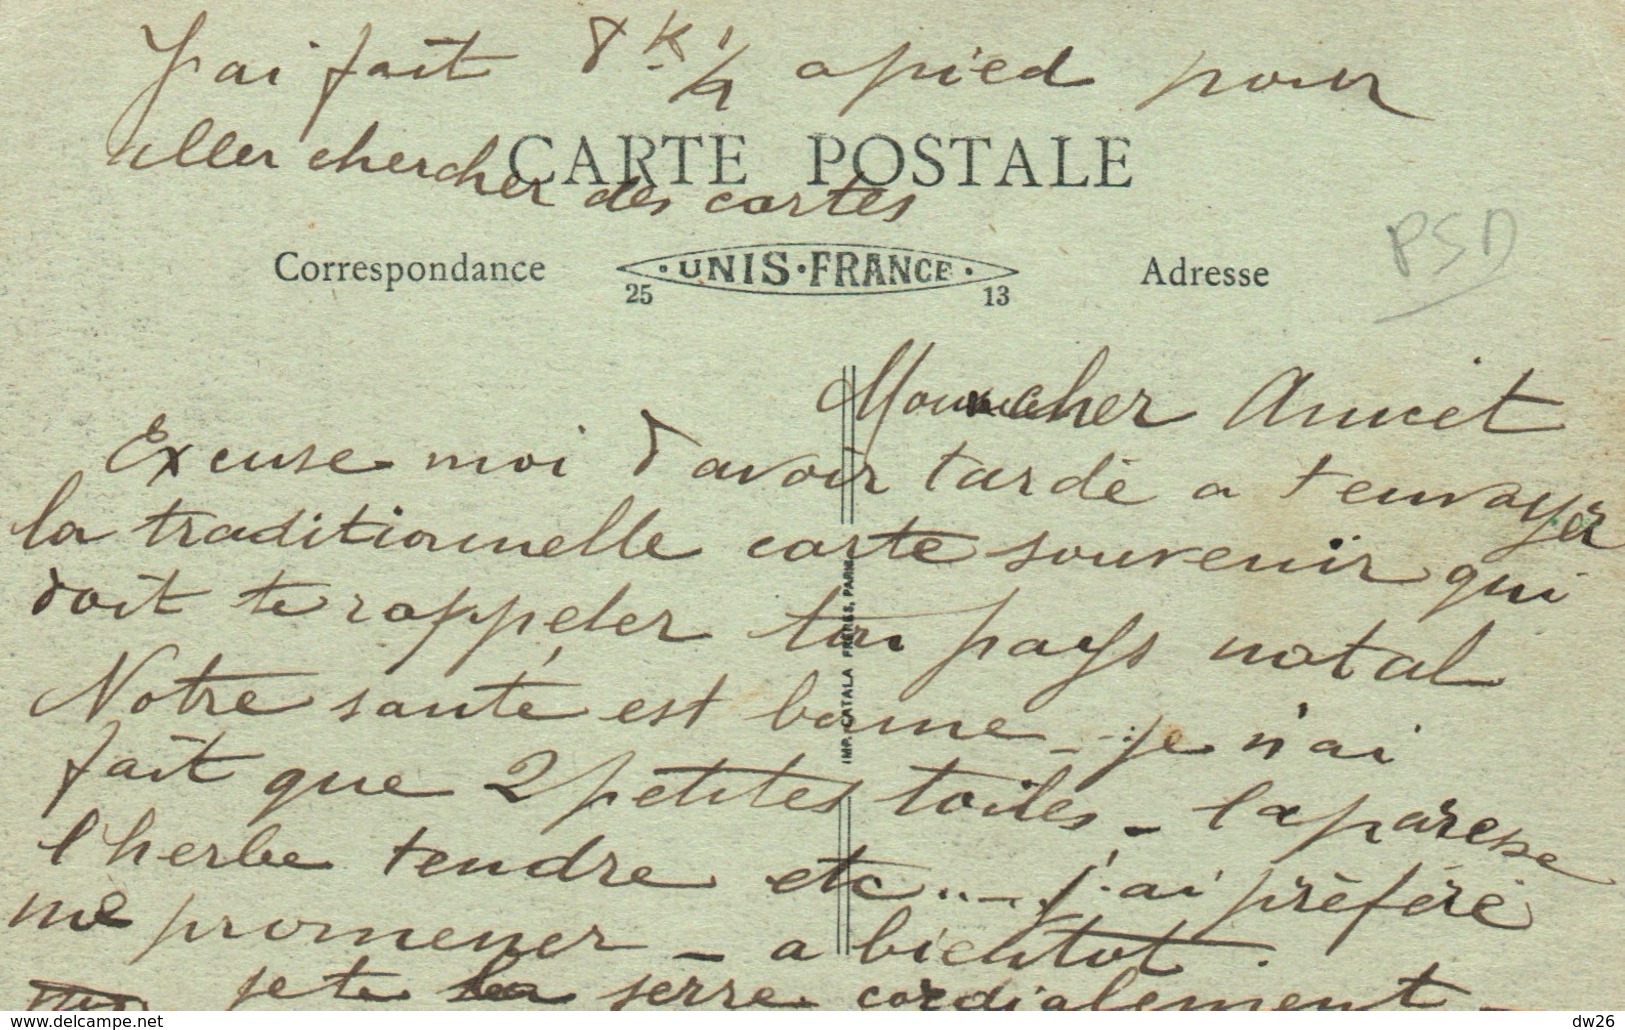 J'ai fait 8 K. 1/2 a pied pour
aller chercher des cartes
CARTE POSTALE
Correspondance
UNIS·FRANCE
25 13
Adresse
PSD
Mon cher
Excuse moi d'avoir tardé a t'envoyer
la traditionnelle carte souvenir qui
doit te rappeler ton pays natal
Notre santé est bonne - je n'ai
fait que 2 petites toiles - la paresse
l'herbe tendre etc..... j'ai préféré
me promener - a bientot.
je te la serre cordialement -
IMP. CATALA FRERES, PARIS
www.delcampe.net
dw26